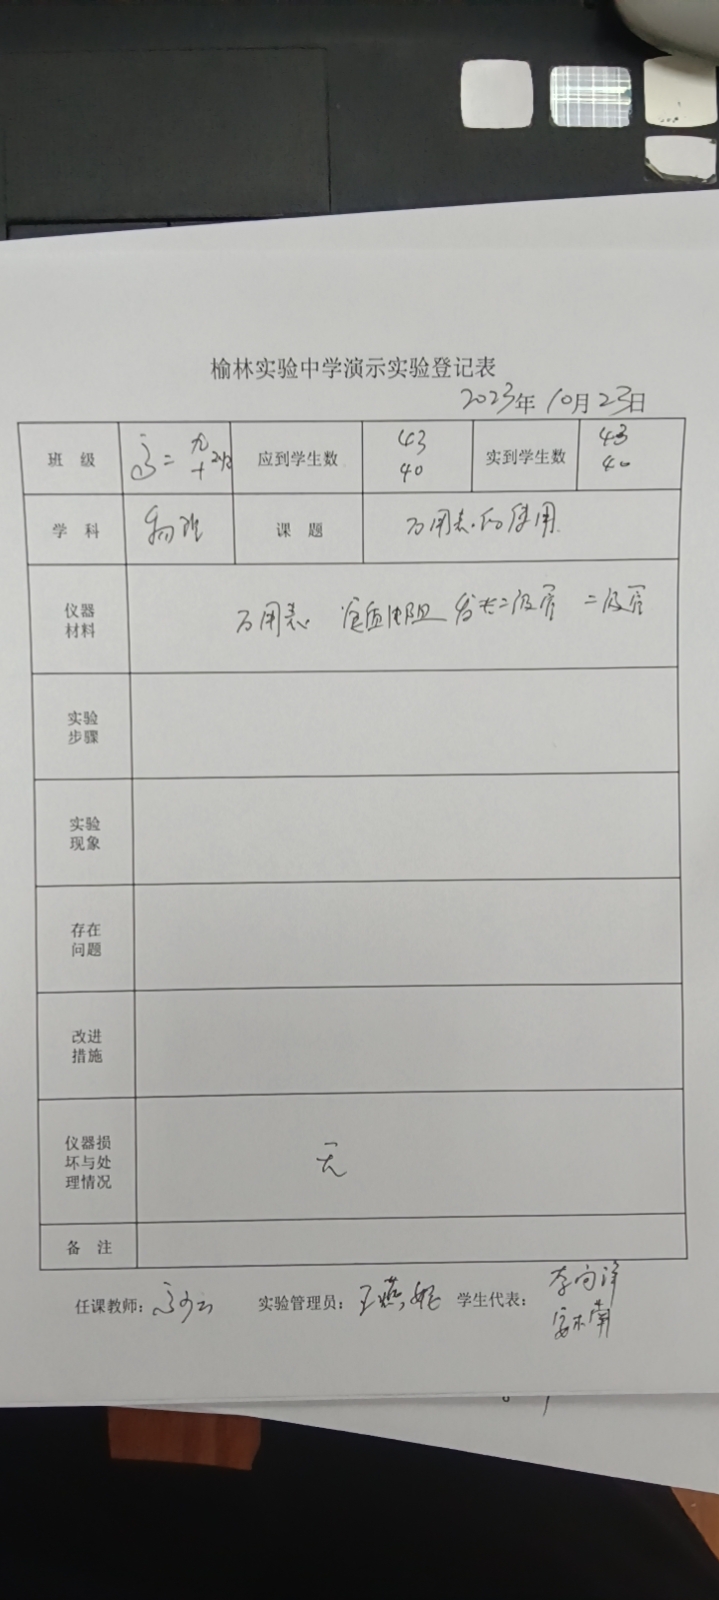 榆林实验中学演示实验登记表
2023年 10月 23日
班 级 高二 九 十 班 应到学生数 43 40 实到学生数 43 40
学 科 物理 课 题 万用表的使用
仪器
材料
万用表 定值电阻 发光二极管 二极管
实验
步骤
实验
现象
存在
问题
改进
措施
仪器损
坏与处
理情况
无
备 注
任课教师: 实验管理员: 学生代表: